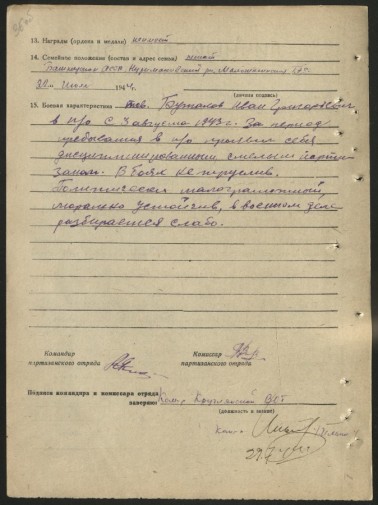 13. Награды (ордена и медали) не имеет
14. Семейное положение (состав и адрес семьи)
Башкирская АССР,
1944 г.
(личная подпись)
15. Боевая характеристика тов. Иван Григорьевич
в п/о с 3 августа 1943 г. За период
пребывания в п/о проявил себя
дисциплинированным, смелым парти-
заном. В боях не труслив.
Политически малограмотный,
морально устойчив, в военном деле
разбирается слабо.
Командир
партизанского отряда
Комиссар
партизанского отряда
Подписи командира и комиссара отряда
заверяю:
(должность и звание)